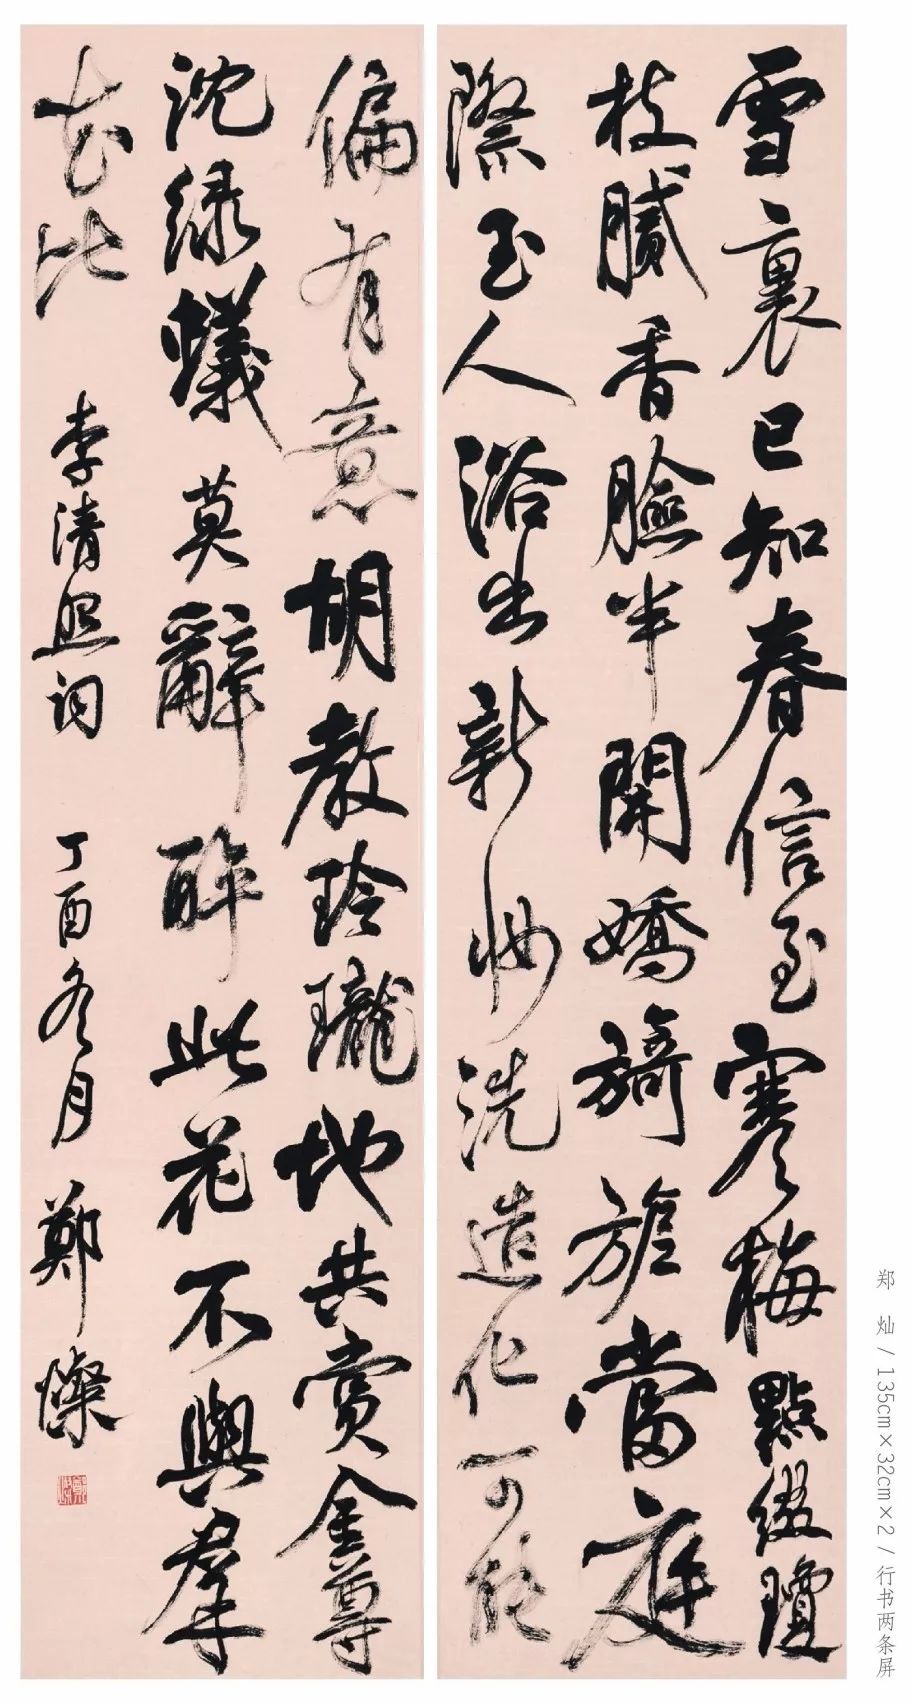 雪裏已知春信至寒梅點綴瓊
枝膩香臉半開嬌旖旎當庭
際玉人浴出新妝洗造化可能
偏有意胡教玲瓏地共賞金尊
沈緑蟻莫辭醉此花不與羣
花比 李清照詞 丁酉冬月 鄭燦
郑 灿 / 135cm×32cm×2 / 行书两条屏